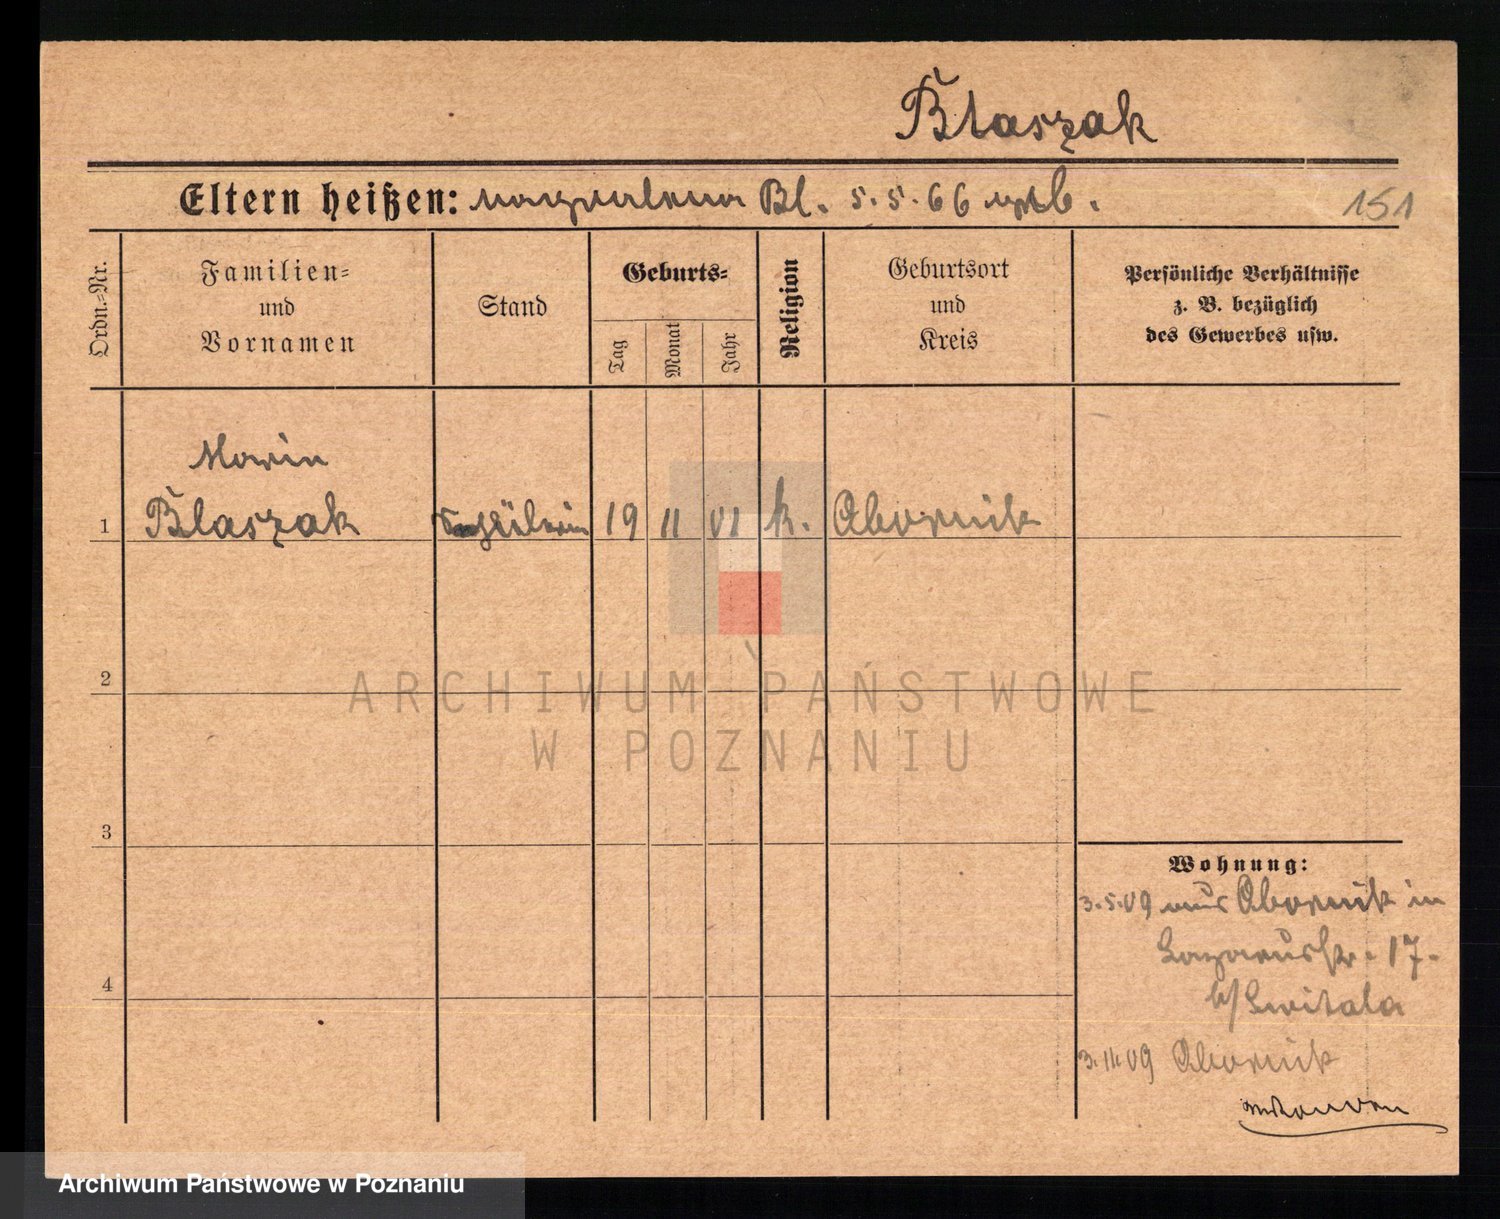 Błaszak
Eltern heißen: Magdalena Bl. 5.5.66 geb.
151
Ordn.-Nr.
Familien-
und
Vornamen
Stand
Geburts-
Tag
Monat
Jahr
Religion
Geburtsort
und
Kreis
Persönliche Verhältnisse
z. B. bezüglich
des Gewerbes usw.
Marie
1 Blaszak Schülerin 19 11 01 k. Obornik
2
3
4
Wohnung:
3.5.09 aus Obornik in
Lazarusstr. 17.
b/ Kwitala
3.11.09 Obornik
ARCHIWUM PAŃSTWOWE
W POZNANIU
Archiwum Państwowe w Poznaniu